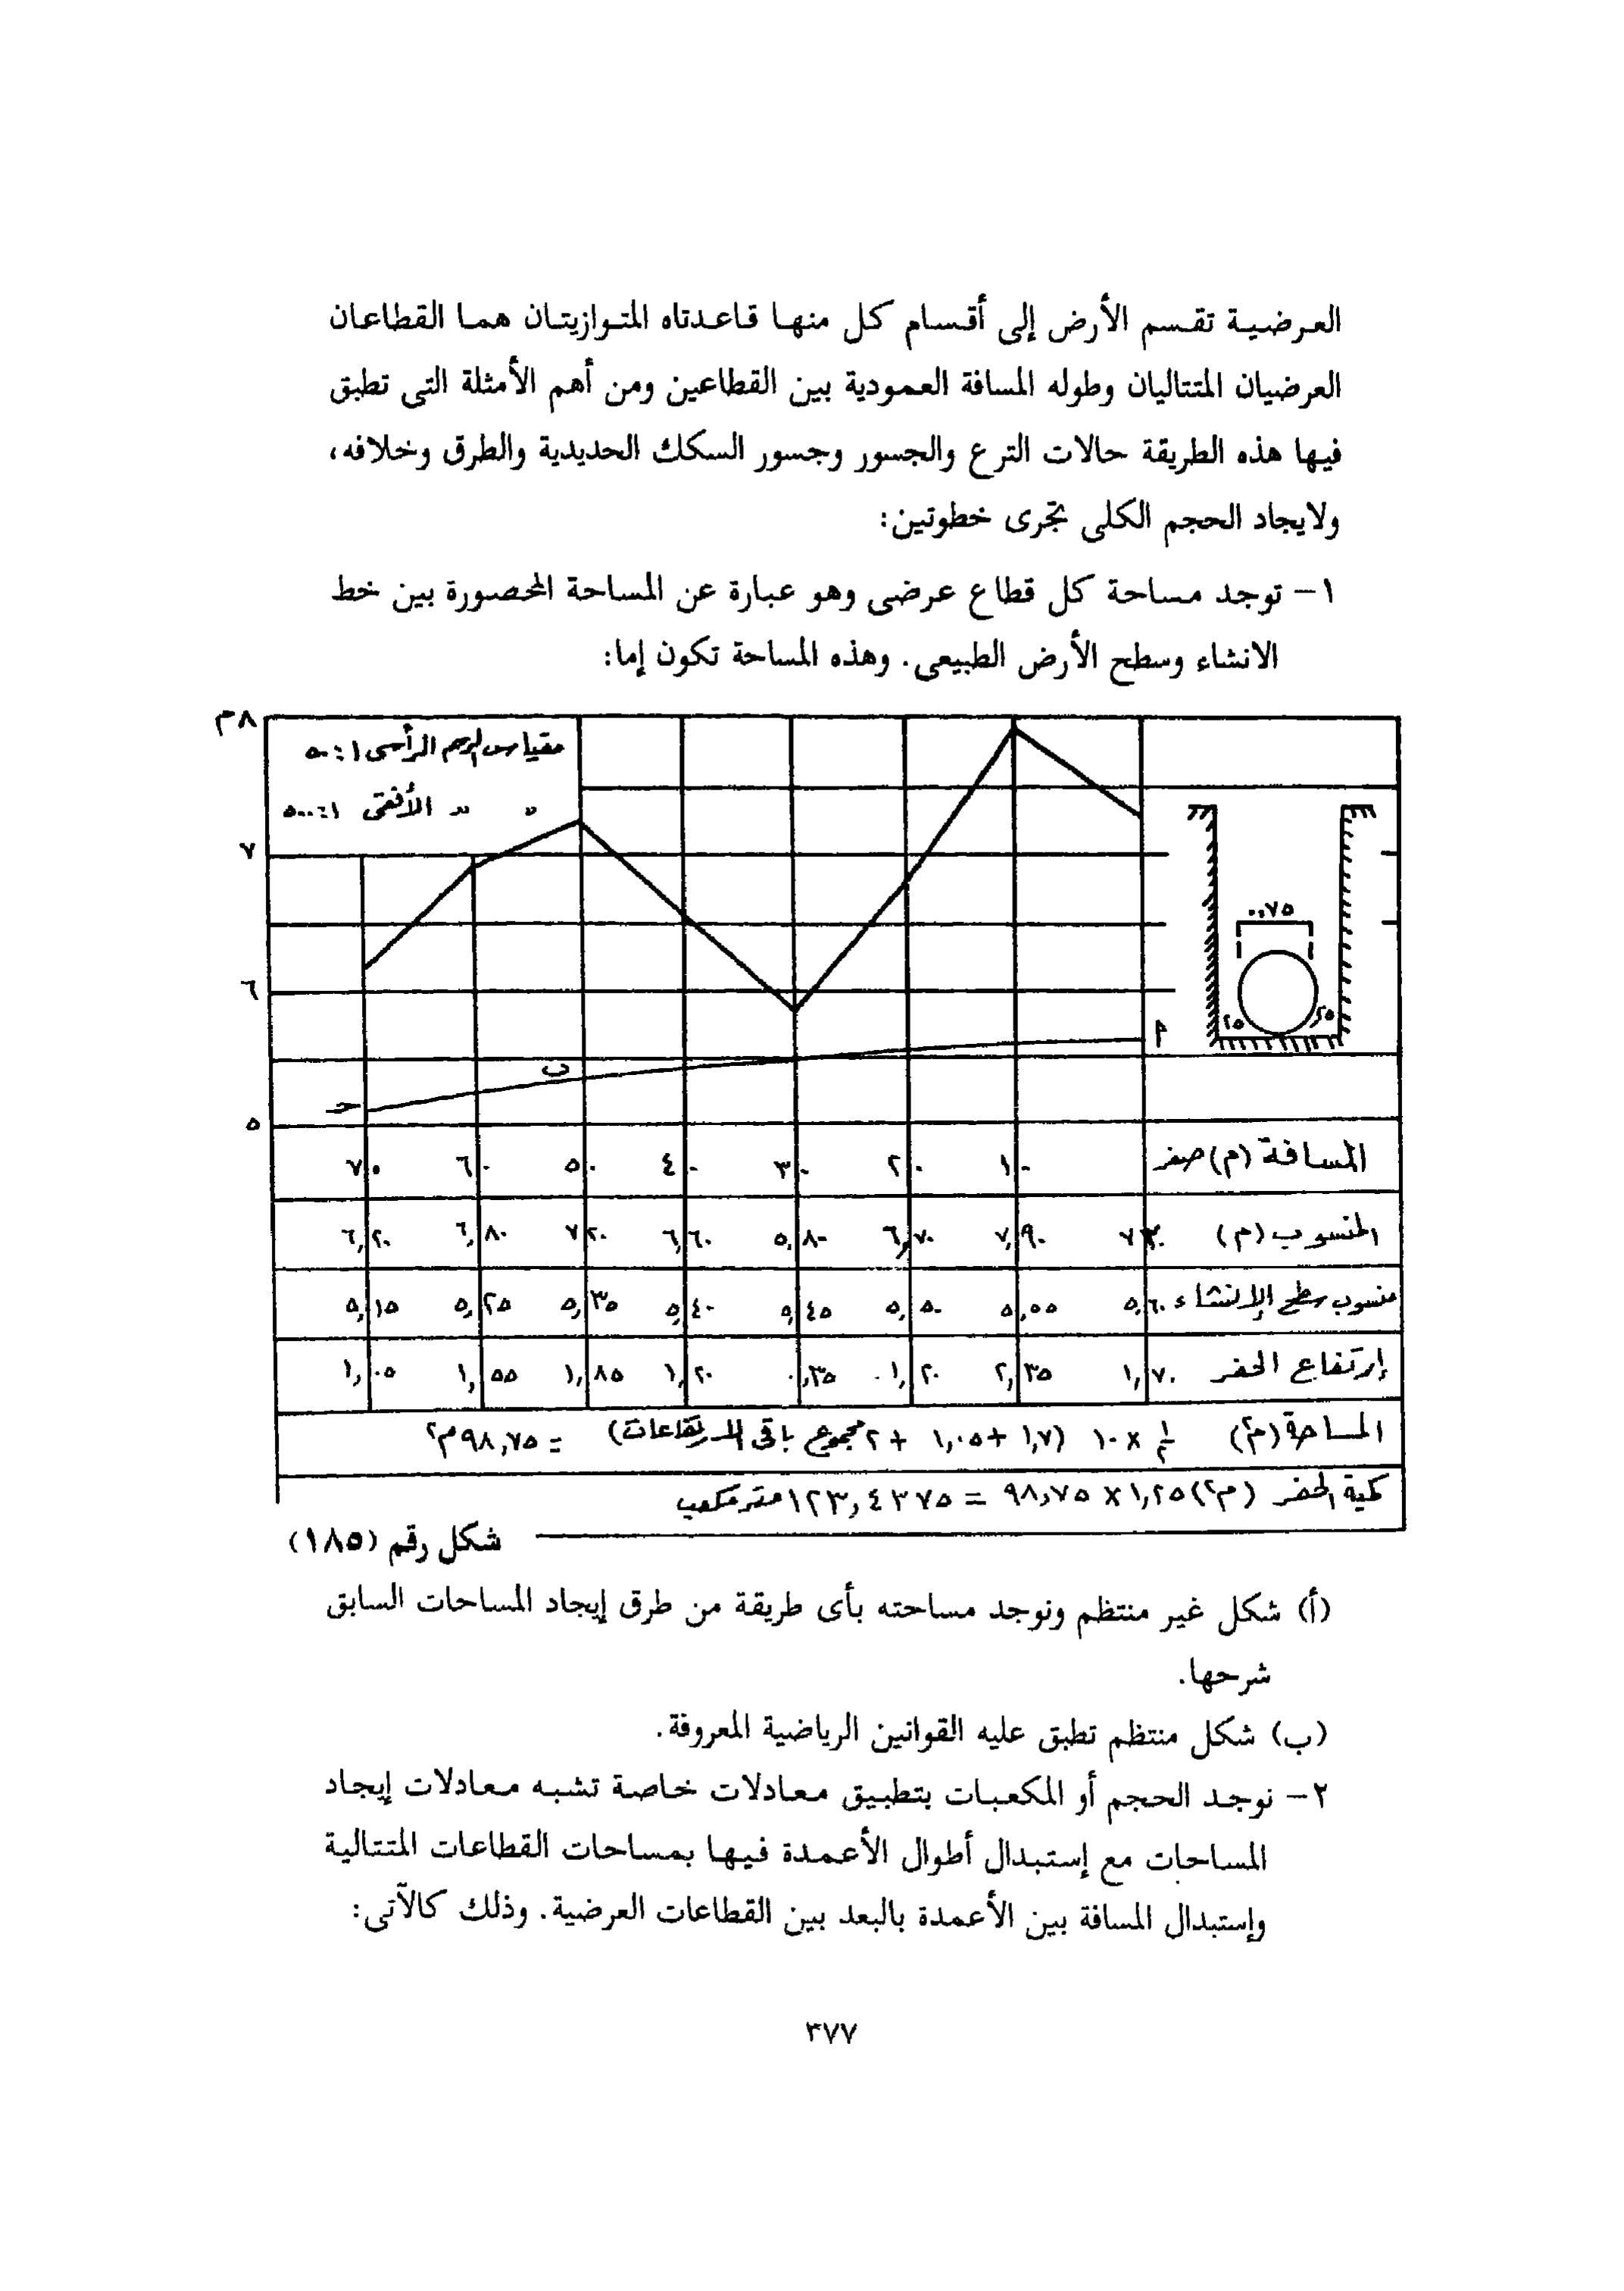 العرضية تقسم الأرض إلى أقسام كل منها قاعدتاه المتوازيتان هما القطاعان
العرضيان المتتاليان وطوله المسافة العمودية بين القطاعين ومن أهم الأمثلة التى تطبق
فيها هذه الطريقة حالات الترع والجسور وجسور السكك الحديدية والطرق وخلافه،
ولايجاد الحجم الكلى تجرى خطوتين:
١- توجد مساحة كل قطاع عرضى وهو عبارة عن المساحة المحصورة بين خط
الانشاء وسطح الأرض الطبيعى. وهذه المساحة تكون إما:
٨م
مقياس الرسم الرأسى ١:٥٠
" " الأفقى ١:٥٠٠
٧
٠,٧٥
٦
٢٥ ٢٥
أ
ب
حـ
٥
المسافة (م) صفر ١٠ ٢٠ ٣٠ ٤٠ ٥٠ ٦٠ ٧٠
المنسوب (م) ٧,٣٠ ٧,٩٠ ٦,٧٠ ٥,٨٠ ٦,٦٠ ٧,٢٠ ٦,٨٠ ٦,٢٠
منسوب سطح الإنشاء ٥,٦٠ ٥,٥٥ ٥,٥٠ ٥,٤٥ ٥,٤٠ ٥,٣٥ ٥,٢٥ ٥,١٥
إرتفاع الحفر ١,٧٠ ٢,٣٥ ١,٢٠ ٠,٣٥ ١,٢٠ ١,٨٥ ١,٥٥ ١,٠٥
المساحة (م٢) ١/٢ × ١٠ (١,٧ + ١,٠٥ + ٢ مجموع باقى الارتفاعات) = ٩٨,٧٥م٢
كمية الحفر (م٣) ١,٢٥ × ٩٨,٧٥ = ١٢٣,٤٣٧٥ متر مكعب
شكل رقم (١٨٥)
(أ) شكل غير منتظم ونوجد مساحته بأى طريقة من طرق إيجاد المساحات السابق
شرحها.
(ب) شكل منتظم تطبق عليه القوانين الرياضية المعروفة.
٢- نوجد الحجم أو المكعبات بتطبيق معادلات خاصة تشبه معادلات إيجاد
المساحات مع إستبدال أطوال الأعمدة فيها بمساحات القطاعات المتتالية
وإستبدال المسافة بين الأعمدة بالبعد بين القطاعات العرضية. وذلك كالآتى:
٣٧٧